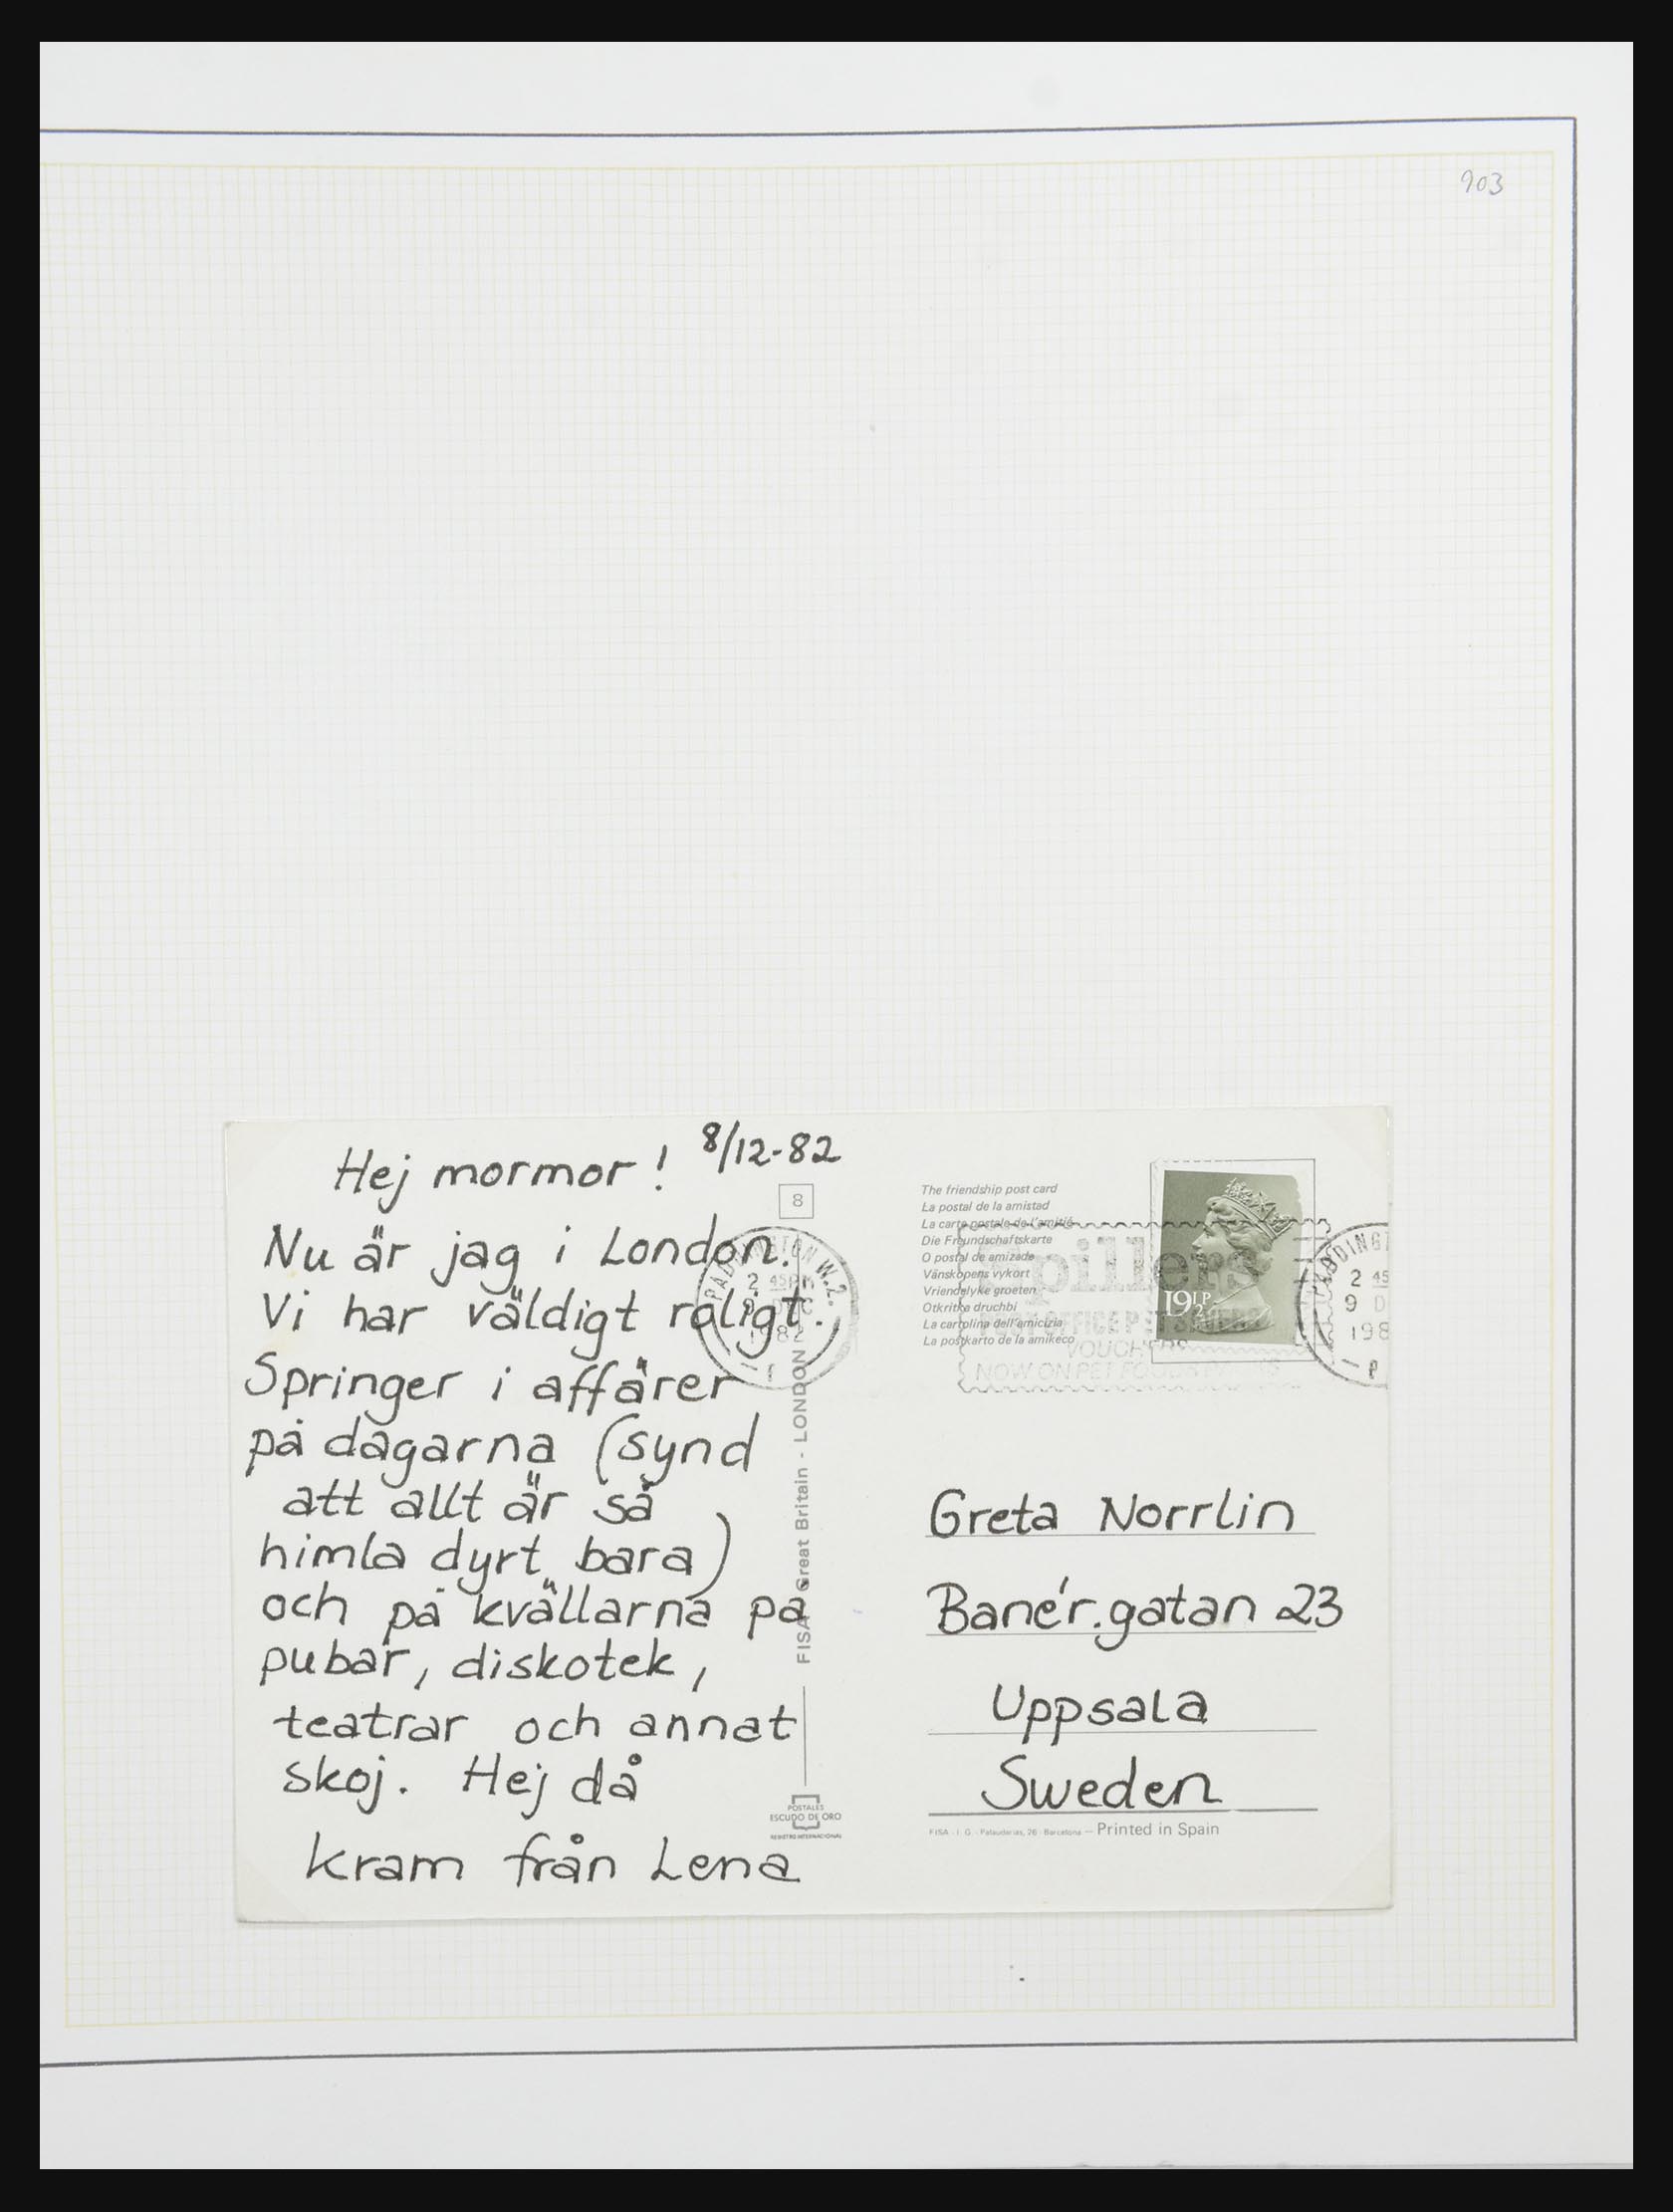 903
Hej mormor! 8/12-82
Nu är jag i London.
Vi har väldigt roligt.
Springer i affärer
på dagarna (synd
att allt är så
himla dyrt bara)
och på kvällarna på
pubar, diskotek,
teatrar och annat
skoj. Hej då
kram från Lena
8
PADDINGTON W.2.
2 45PM
9 DEC
1982
FISA Great Britain - LONDON
POSTALES
ESCUDO DE ORO
REGISTRO INTERNACIONAL
The friendship post card
La postal de la amistad
La carte postale de l'amitié
Die Freundschaftskarte
O postal de amizade
Vänskapens vykort
Vriendelyke groeten
Otkritka druchbi
La cartolina dell'amicizia
La postkarto de la amikeco
Spillers
POST OFFICE PET SAVERS
VOUCHERS
NOW ON PET FOODS
19½P
PADDINGT
2 45
9 D
198
Greta Norrlin
Banér.gatan 23
Uppsala
Sweden
FISA - I. G. - Palaudarias, 26 - Barcelona — Printed in Spain